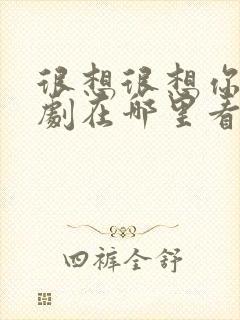 很想很想你
劇在哪里看
四裤全舒